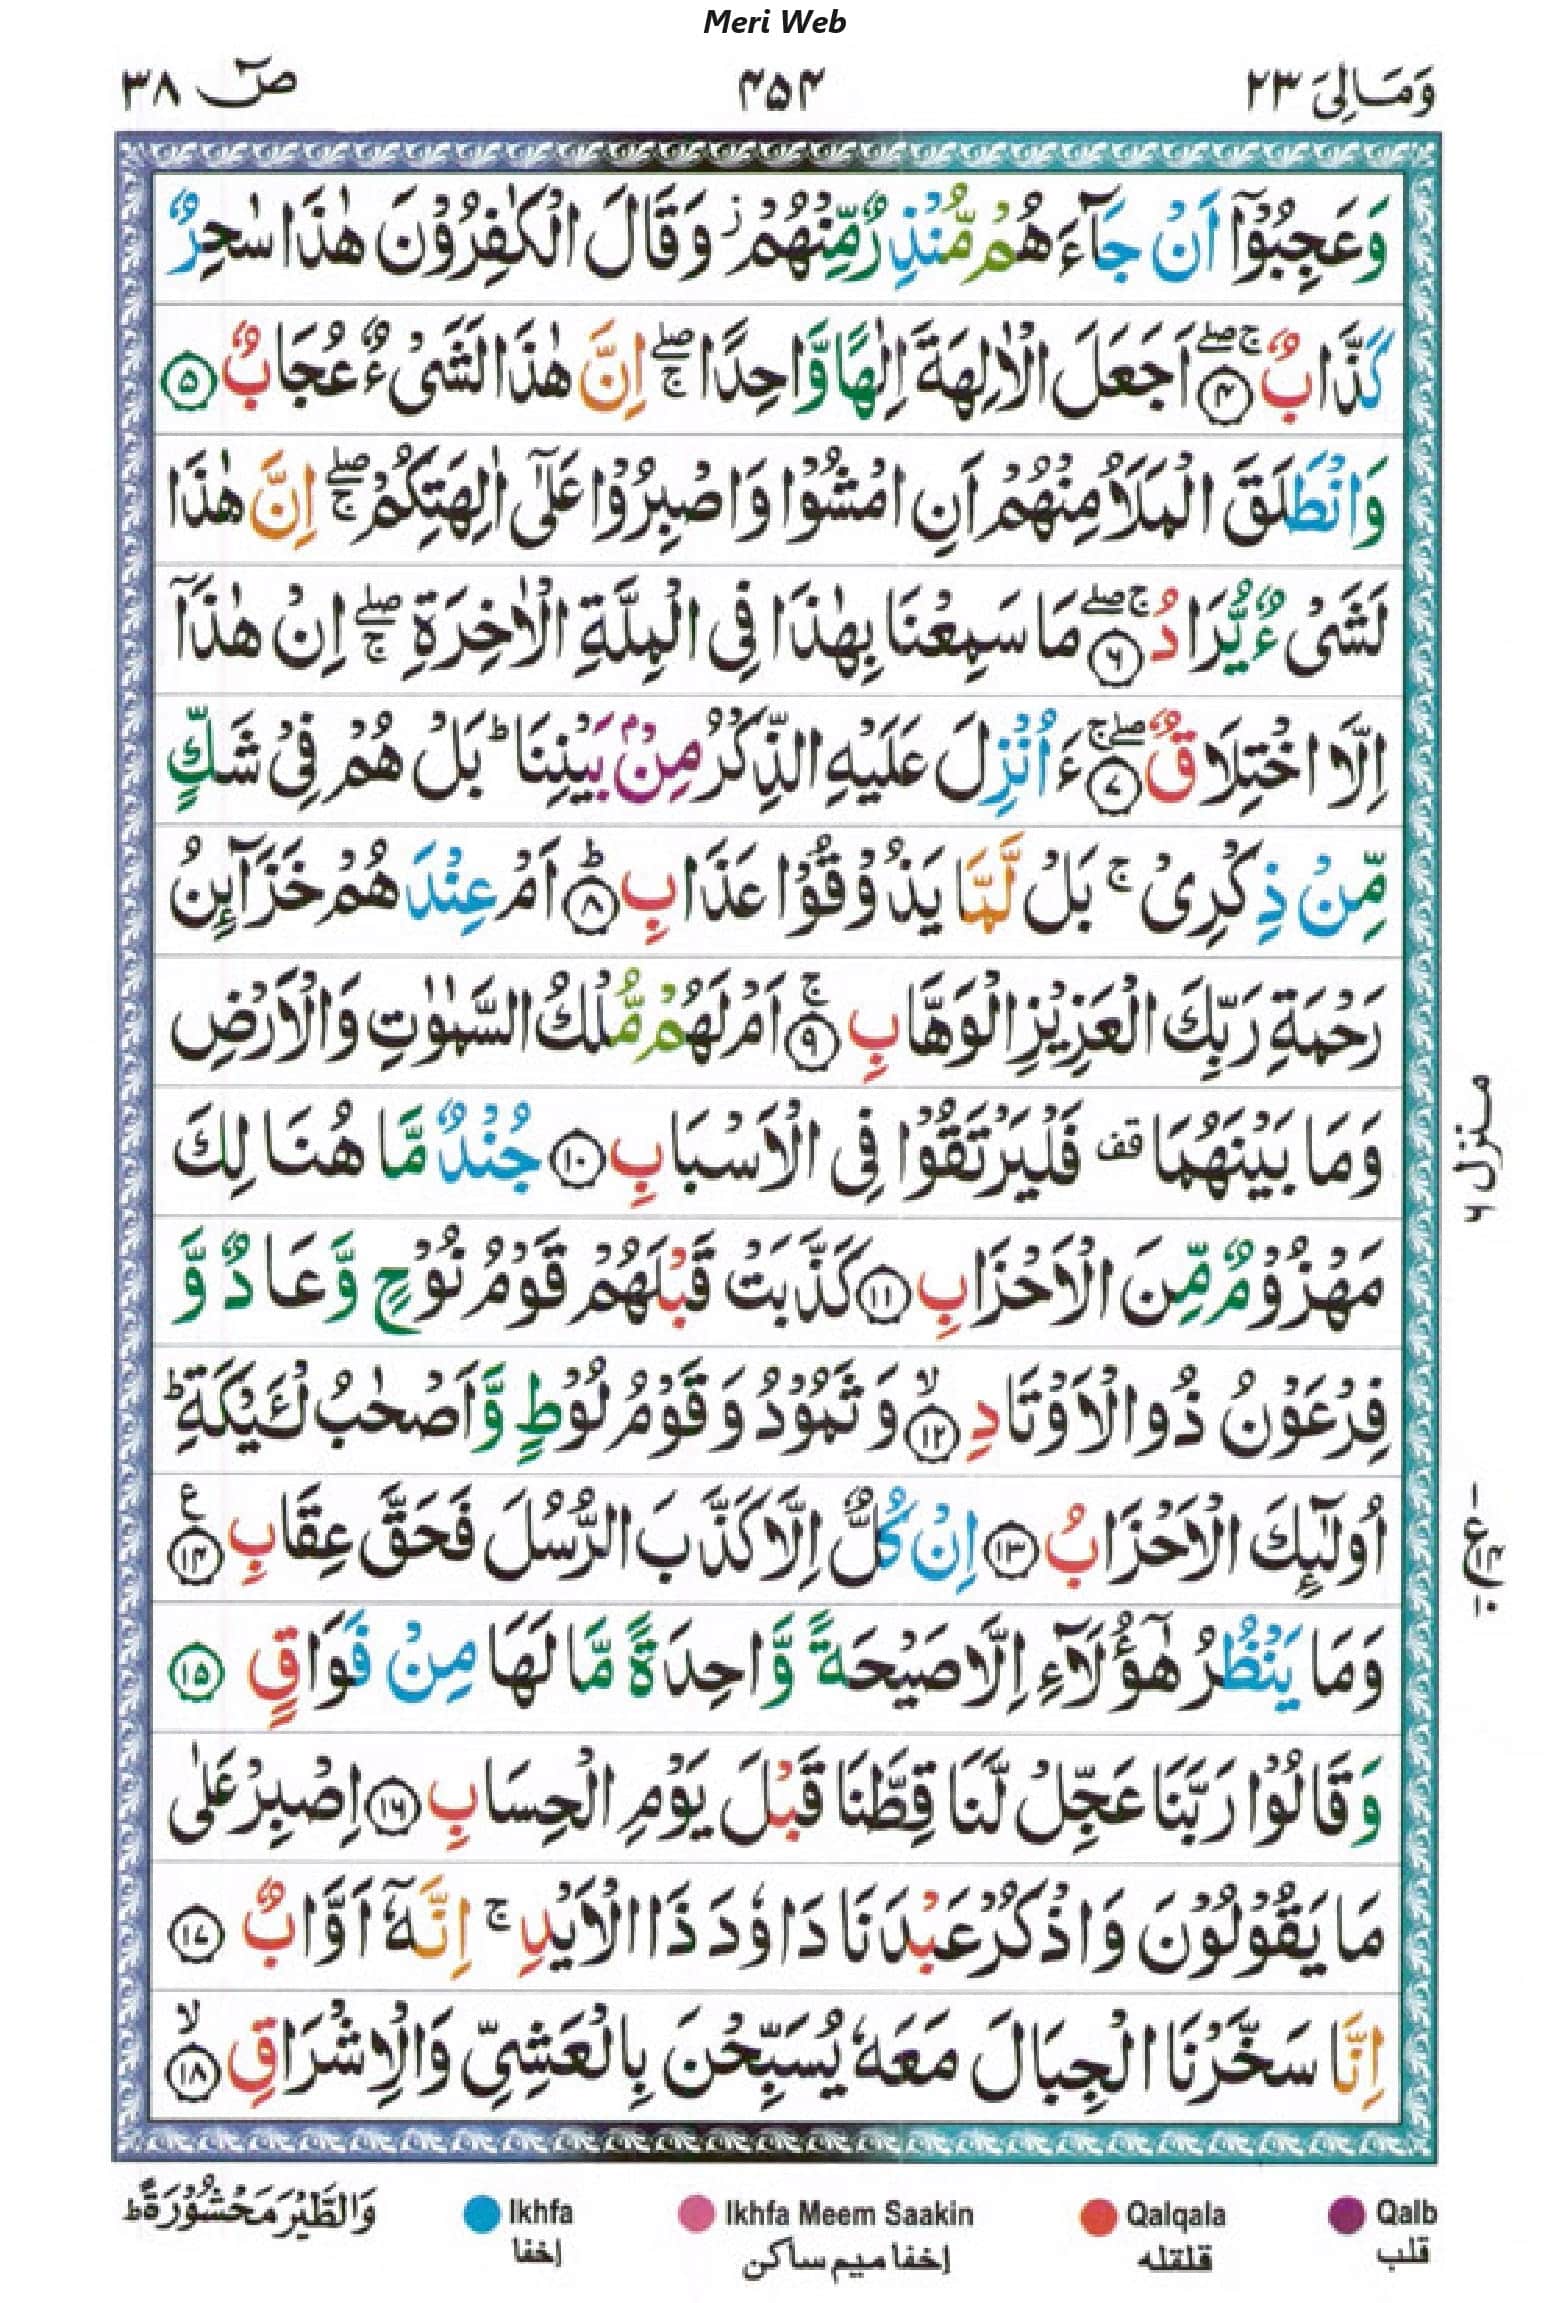 Meri Web
وَمَالِىَ ٢٣ ۴۵۴ صٓ ٣٨
وَعَجِبُوْۤا اَنْ جَآءَهُمْ مُّنْذِرٌ مِّنْهُمْ ز وَقَالَ الْكٰفِرُوْنَ هٰذَا سٰحِرٌ
كَذَّابٌ ۴ ج صلے اَجَعَلَ الْاٰلِهَةَ اِلٰهًا وَّاحِدًا صلے ج اِنَّ هٰذَا لَشَىْءٌ عُجَابٌ ۵
وَانْطَلَقَ الْمَلَاُ مِنْهُمْ اَنِ امْشُوْا وَاصْبِرُوْا عَلٰۤى اٰلِهَتِكُمْ صلے ج اِنَّ هٰذَا
لَشَىْءٌ يُّرَادُ ۶ ج صلے مَا سَمِعْنَا بِهٰذَا فِى الْمِلَّةِ الْاٰخِرَةِ صلے ج اِنْ هٰذَاۤ
اِلَّا اخْتِلَاقٌ ۷ صلے ج ءَاُنْزِلَ عَلَيْهِ الذِّكْرُ مِنْۢ بَيْنِنَا ط بَلْ هُمْ فِىْ شَكٍّ
مِّنْ ذِكْرِىْ ج بَلْ لَّمَّا يَذُوْقُوْا عَذَابِ ۸ ط اَمْ عِنْدَهُمْ خَزَآئِنُ
رَحْمَةِ رَبِّكَ الْعَزِيْزِ الْوَهَّابِ ۹ ج اَمْ لَهُمْ مُّلْكُ السَّمٰوٰتِ وَالْاَرْضِ
وَمَا بَيْنَهُمَا قف فَلْيَرْتَقُوْا فِى الْاَسْبَابِ ۱۰ جُنْدٌ مَّا هُنَالِكَ
مَهْزُوْمٌ مِّنَ الْاَحْزَابِ ۱۱ كَذَّبَتْ قَبْلَهُمْ قَوْمُ نُوْحٍ وَّعَادٌ وَّ
فِرْعَوْنُ ذُو الْاَوْتَادِ ۱۲ لا وَثَمُوْدُ وَقَوْمُ لُوْطٍ وَّاَصْحٰبُ لْئَيْكَةِ ط
اُولٰٓئِكَ الْاَحْزَابُ ۱۳ اِنْ كُلٌّ اِلَّا كَذَّبَ الرُّسُلَ فَحَقَّ عِقَابِ ۱۴ ع
وَمَا يَنْظُرُ هٰۤؤُلَآءِ اِلَّا صَيْحَةً وَّاحِدَةً مَّا لَهَا مِنْ فَوَاقٍ ۱۵
وَقَالُوْا رَبَّنَا عَجِّلْ لَّنَا قِطَّنَا قَبْلَ يَوْمِ الْحِسَابِ ۱۶ اِصْبِرْ عَلٰى
مَا يَقُوْلُوْنَ وَاذْكُرْ عَبْدَنَا دَاوٗدَ ذَا الْاَيْدِ ج اِنَّهٗۤ اَوَّابٌ ۱۷
اِنَّا سَخَّرْنَا الْجِبَالَ مَعَهٗ يُسَبِّحْنَ بِالْعَشِىِّ وَالْاِشْرَاقِ ۱۸ لا
منزل ۶
ع
وَالطَّيْرَ مَحْشُوْرَةً ط
Ikhfa
إخفا
Ikhfa Meem Saakin
إخفا ميم ساكن
Qalqala
قلقله
Qalb
قلب